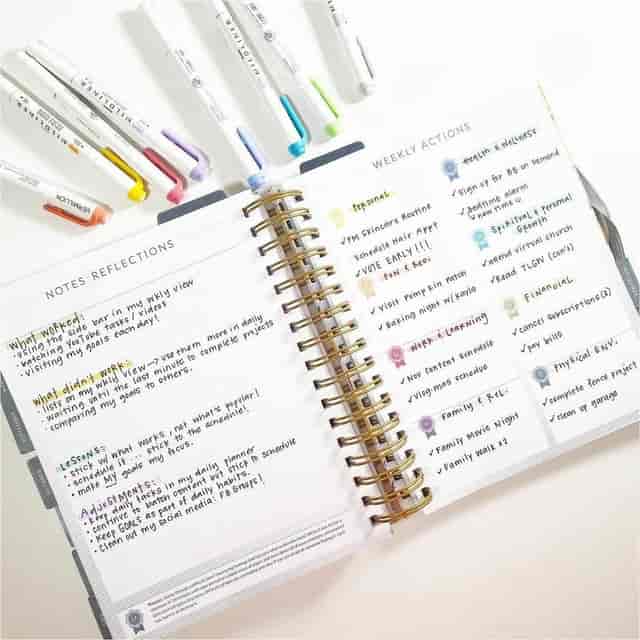 MILDLINER
MILDLINER
MILDLINER
VERMILLION
NOTES REFLECTIONS
What worked:
• using the side bar in my wkly view
• batching YouTube tasks / videos
• visiting my goals each day!
What didn't work:
• lists on my wkly view → use them more in daily
• waiting until the last minute to complete projects
• comparing my goals to others.
LESSONS:
• stick w/ what works, not what's popular!
• schedule it... stick to the schedule!
• make MY goals my focus.
Adjustments:
• keep daily tasks in my daily planner
• continue to batch content but stick to schedule
• Keep GOALS as part of daily habits.
• clean out my social media! FB Groups!
WEEKLY ACTIONS
Personal
✓ PM Skincare Routine
Schedule Hair Appt
✓ VOTE EARLY!!!
Fun & Rec:
✓ Visit Pumpkin Patch
✓ Baking night w/ Kayla
Work & Learning
✓ Nov content schedule
✓ Vlogmas schedule
Family & Rel:
✓ Family Movie Night
✓ Family Walk x2
Health & Wellness
✓ sign up for BB on Demand
✓ Bedtime alarm
Spiritual & Personal Growth
✓ attend virtual church
✓ Read TLGN
Financial
✓ cancel subscriptions(2)
✓ pay bills
Physical Env.
✓ complete fence project
✓ clean up garage